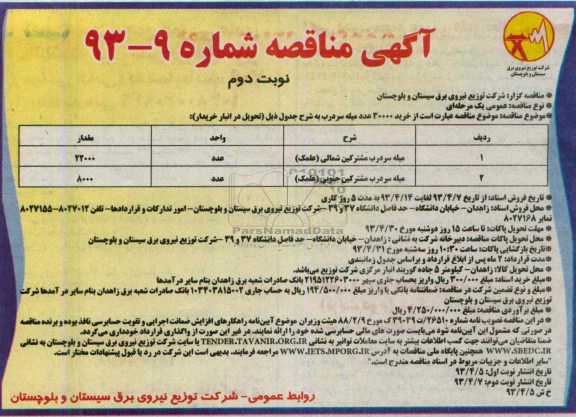 آگهی مناقصه شماره ۹-۹۳
نوبت دوم
شرکت توزیع نیروی برق
سیستان و بلوچستان
مناقصه گزار: شرکت توزیع نیروی برق سیستان و بلوچستان
نوع مناقصه: عمومی یک مرحله‌ای
موضوع مناقصه: موضوع مناقصه عبارت است از خرید ۳۰۰۰۰ عدد میله سردرب به شرح جدول ذیل (تحویل در انبار خریدار):
ردیف شرح واحد مقدار
۱ میله سردرب مشترکین شمالی (علمک) عدد ۲۲۰۰۰
۲ میله سردرب مشترکین جنوبی (علمک) عدد ۸۰۰۰
تاریخ فروش اسناد: از تاریخ ۹۳/۴/۷ لغایت ۹۳/۴/۱۴ به مدت ۵ روز کاری
محل فروش اسناد: زاهدان- خیابان دانشگاه- حد فاصل دانشگاه ۳۷ و ۳۹ -شرکت توزیع نیروی برق سیستان و بلوچستان- امور تدارکات و قراردادها- تلفن ۸۰۲۷۰۱۲-۸۰۲۷۱۵۵
نمابر ۸۰۲۷۱۶۸
مهلت تحویل پاکات: تا ساعت ۱۵ روز دوشنبه مورخ ۹۳/۴/۳۰
محل تحویل پاکات مناقصه: دبیرخانه شرکت به نشانی: زاهدان- خیابان دانشگاه- حد فاصل دانشگاه ۳۷ و ۳۹ -شرکت توزیع نیروی برق سیستان و بلوچستان
تاریخ بازگشایی پاکات: ساعت ۱۰:۳۰ روز سه‌شنبه مورخ ۹۳/۴/۳۱
مدت قرارداد: ۲ ماه پس از ابلاغ قرارداد و براساس جدول زمانبندی
محل تحویل کالا: زاهدان- کیلومتر ۵ جاده گوربند انبار مرکزی شرکت توزیع می‌باشد.
مبلغ خرید اسناد: مبلغ ۳۰۰/۰۰۰ ریال واریز بحساب جاری سپهر ۲۱۹۵۱۲۲۶۰۳۰۰۰ بانک صادرات شعبه برق زاهدان بنام سایر درآمدها
مبلغ و نوع تضمین شرکت در مناقصه: ضمانتنامه بانکی یا واریز مبلغ ۱۹۴/۵۰۰/۰۰۰ ریال به حساب جاری ۱۰۳۴۰۳۸۱۵۰۰۲ بانک صادرات شعبه برق زاهدان بنام سایر درآمدها شرکت
توزیع نیروی برق سیستان و بلوچستان
مبلغ برآوردی مناقصه: مبلغ ۴/۲۵۰/۰۰۰/۰۰۰ ریال می‌باشد
در این مناقصه تصویب نامه شماره ۲۶۵۱۰/ت۳۹۰۳۹ک مورخ ۸۸/۲/۹ هیئت وزیران موضوع آیین‌نامه راهکارهای افزایش ضمانت اجرایی و تقویت حسابرسی نافذ بوده و برنده مناقصه
در صورتی که مشمول این آیین‌نامه شود می‌بایست صورت های مالی حسابرسی شده خود را ارائه نمایند. در غیر این صورت از واگذاری قرارداد خودداری می‌گردد.
ضمنا متقاضیان می‌توانند جهت کسب اطلاعات بیشتر به سایت معاملات توانیر به نشانی TENDER.TAVANIR.ORG.IR یا سایت شرکت توزیع نیروی برق سیستان و بلوچستان به نشانی
WWW.SBEDC.IR همچنین پایگاه ملی مناقصات به آدرس WWW.IETS.MPORG.IR مراجعه فرمایند. بدیهی است این شرکت در رد یا قبول پیشنهادات مختار است.
"سایر اطلاعات و جزییات مربوط در اسناد مناقصه مندرج است."
تاریخ انتشار نوبت اول: ۹۳/۴/۵
تاریخ انتشار نوبت دوم: ۹۳/۴/۷
خ ش ۹۳/۴/۵
روابط عمومی- شرکت توزیع نیروی برق سیستان و بلوچستان
ParsNamadData